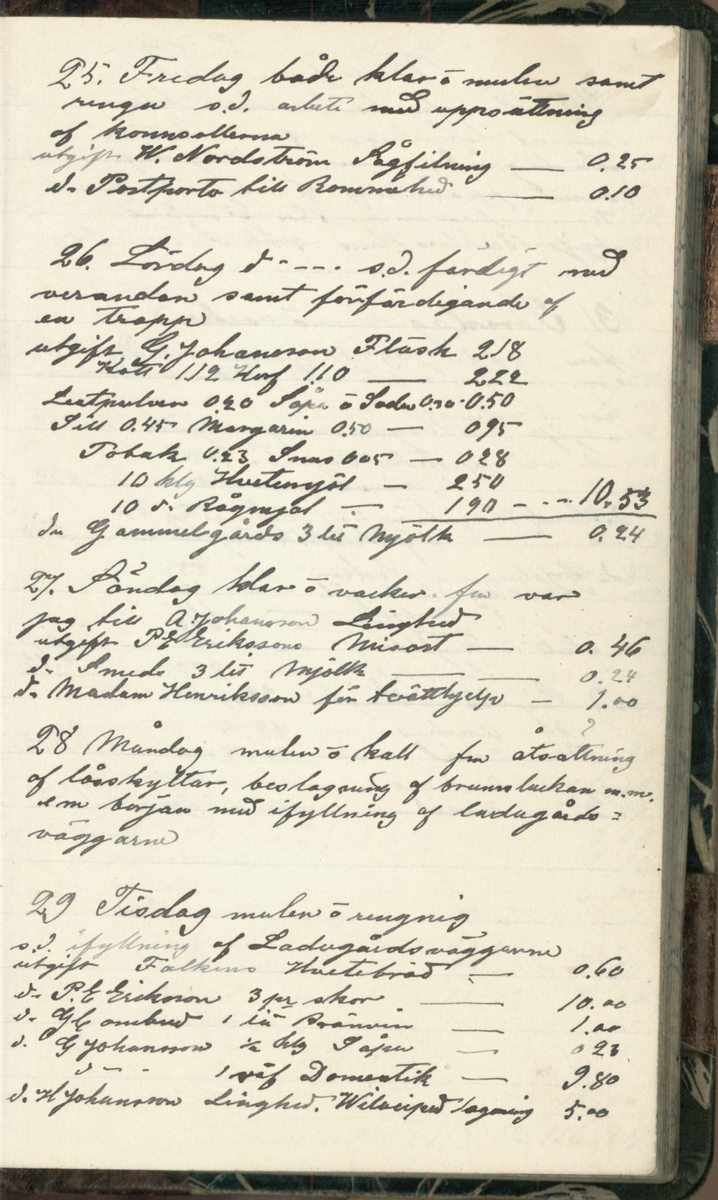 25. Fredag både klar o mulen samt
rengn s.d. arbete med uppsättning
af konnsollerna
utgift W. Nordström Sågfilning — 0.25
do Postporto till Rommehed — 0.10
26. Lördag do - - - . s.d. färdigt med
verandan samt förfärdigande af
en trapp
utgift G. Johansson Fläsk 218
Kött 112 Korf 1.10 — 222
Jästpulver 020 Såpa o Soda 0.30 - 0.50
Sill 0.45 Margarin 0.50 — 095
Tobak 0.23 Snus 005 — 028
10 klg Hvetemjöl — 250
10 do Rågmjöl — 190 - . - - 10.53
do Gammelgårds 3 lit Mjölk — 0.24
27. Söndag klar o vacker. fm var
jag till A Johansson Linghed
utgift P E Erikssons Misost — 0.46
do Smeds 3 lit Mjölk — 0.24
do Madam Henriksson för tvätthjelp — 1.00
28 Måndag mulen o kall fm åtsättning
af låsskyltar, beslagning af brunnsluckan m.m.
em början med ifyllning af ladugårds=
väggarne
29 Tisdag mulen o rengnig
s.d. ifyllning af Ladugårdsväggarne
utgift Falkens Hvetebröd — 0.60
do P. E Erikson 3 par skor — 10.00
do G E ombud 1 lit Bränvin — 1.00
do G Johansson ½ klg Såpa — 023
do - - 1 väf Domestik — 9.80
do H Johansson Linghed. Velociped lagning 5.00